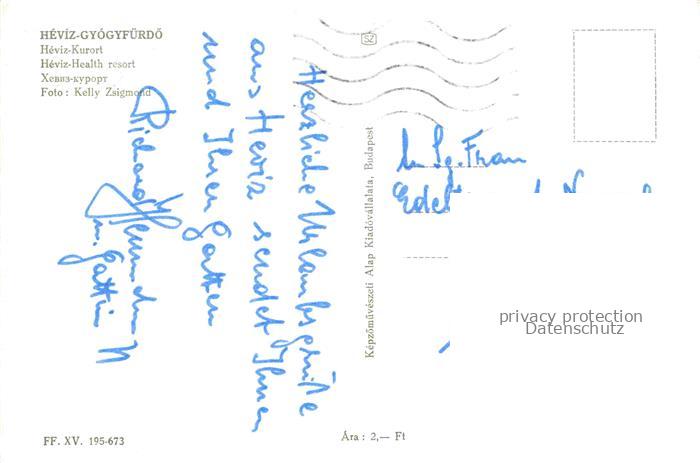 HÉVÍZ-GYÓGYFÜRDŐ
Hévíz-Kurort
Hévíz-Health resort
Хевиз-курорт
Foto : Kelly Zsigmond
Herzliche Urlaubsgrüße
aus Hévíz sendet Ihnen
und Ihren Gatten
Richard
m. Gattin
SZ
Képzőművészeti Alap Kiadóvállalata, Budapest
Frau
privacy protection
Datenschutz
FF. XV. 195-673
Ára : 2,— Ft